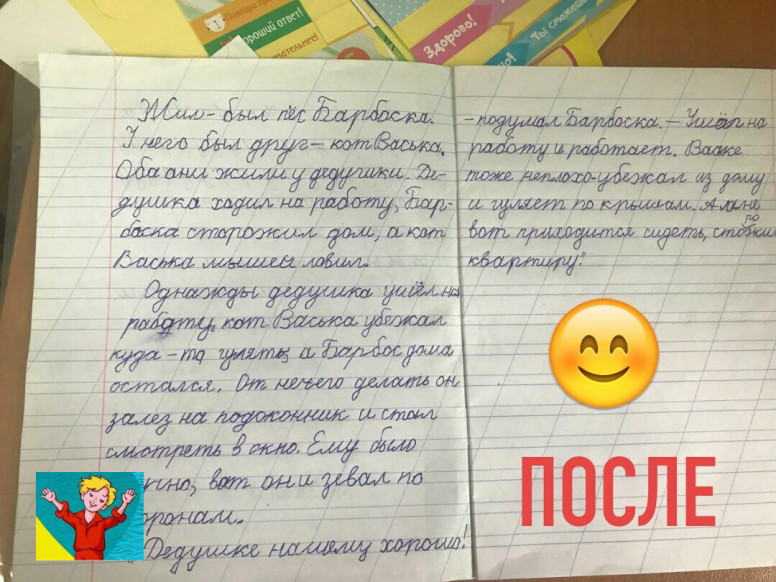 Повтори
хороший ответ!
Замечательнее!
Здорово!
Ты сможешь
Жил-был пёс Барбоска.
У него был друг-кот Васька.
Оба они жили у дедушки. Де-
душка ходил на работу, Бар-
боска сторожил дом, а кот
Васька мышей ловил.
Однажды дедушка ушёл на
работу, кот Васька убежал
куда-то гулять, а Барбос дома
остался. От нечего делать он
залез на подоконник и стал
смотреть в окно. Ему было
вот он и зевал по
Дедушке нашему хорошо!
-подумал Барбоска. - Ушёл на
работу и работает. Ваське
тоже неплохо-убежал из дому
и гуляет по крышам. А мне
вот приходится сидеть,
квартиру."
ПОСЛЕ